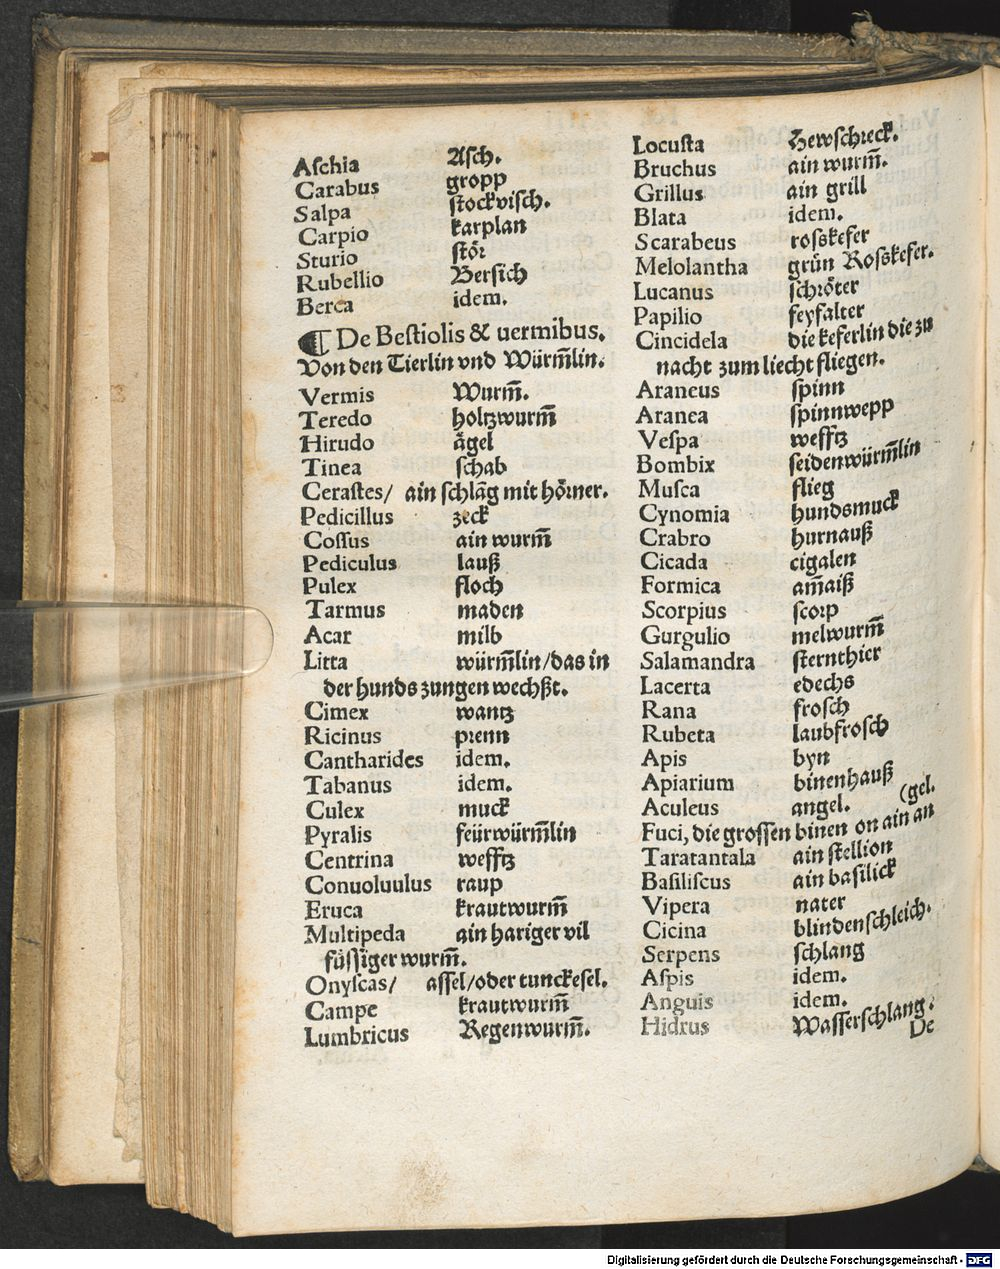 Aſchia Aſch.
Carabus gropp
Salpa ſtockviſch.
Carpio karplan
Sturio ſtör
Rubellio Berſich
Berca idem.
¶ De Beſtiolis & uermibus.
Von den Tierlin vnd Würm̃lin.
Vermis Wurm̃.
Teredo holtzwurm̃
Hirudo ägel
Tinea ſchab
Ceraſtes/ ain ſchlãg mit hörner.
Pedicillus zeck
Coſſus ain wurm̃
Pediculus lauß
Pulex floch
Tarmus maden
Acar milb
Litta würm̃lin/das in
der hunds zungen wechßt.
Cimex wantz
Ricinus prenn
Cantharides idem.
Tabanus idem.
Culex muck
Pyralis feürwürm̃lin
Centrina wefftz
Conuoluulus raup
Eruca krautwurm̃
Multipeda ain hariger vil
füſſiger wurm̃.
Onyſcas/ aſſel/oder tunckeſel.
Campe krautwurm̃
Lumbricus Regenwurm̃.
Locuſta Hewſchreck.
Bruchus ain wurm̃.
Grillus ain grill
Blata idem.
Scarabeus roſskefer
Melolantha grün Roſskefer.
Lucanus ſchröter
Papilio feyfalter
Cincidela die keferlin die zu
nacht zum liecht fliegen.
Araneus ſpinn
Aranea ſpinnwepp
Veſpa wefftz
Bombix ſeidenwürm̃lin
Muſca flieg
Cynomia hundsmuck
Crabro hurnauß
Cicada cigalen
Formica am̃aiß
Scorpius ſcorp
Gurgulio melwurm̃
Salamandra ſternthier
Lacerta edechs
Rana froſch
Rubeta laubfroſch
Apis byn
Apiarium binenhauß
Aculeus angel. (gel.
Fuci, die groſſen binen on ain an
Taratantala ain ſtellion
Baſiliſcus ain baſilick
Vipera nater
Cicina blindenſchleich.
Serpens ſchlang
Aſpis idem.
Anguis idem.
Hidrus Waſſerſchlang.
De
Digitalisierung gefördert durch die Deutsche Forschungsgemeinschaft - DFG